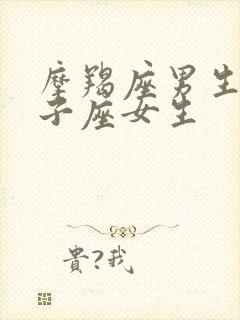 摩羯座男生
子座女生
貴?我